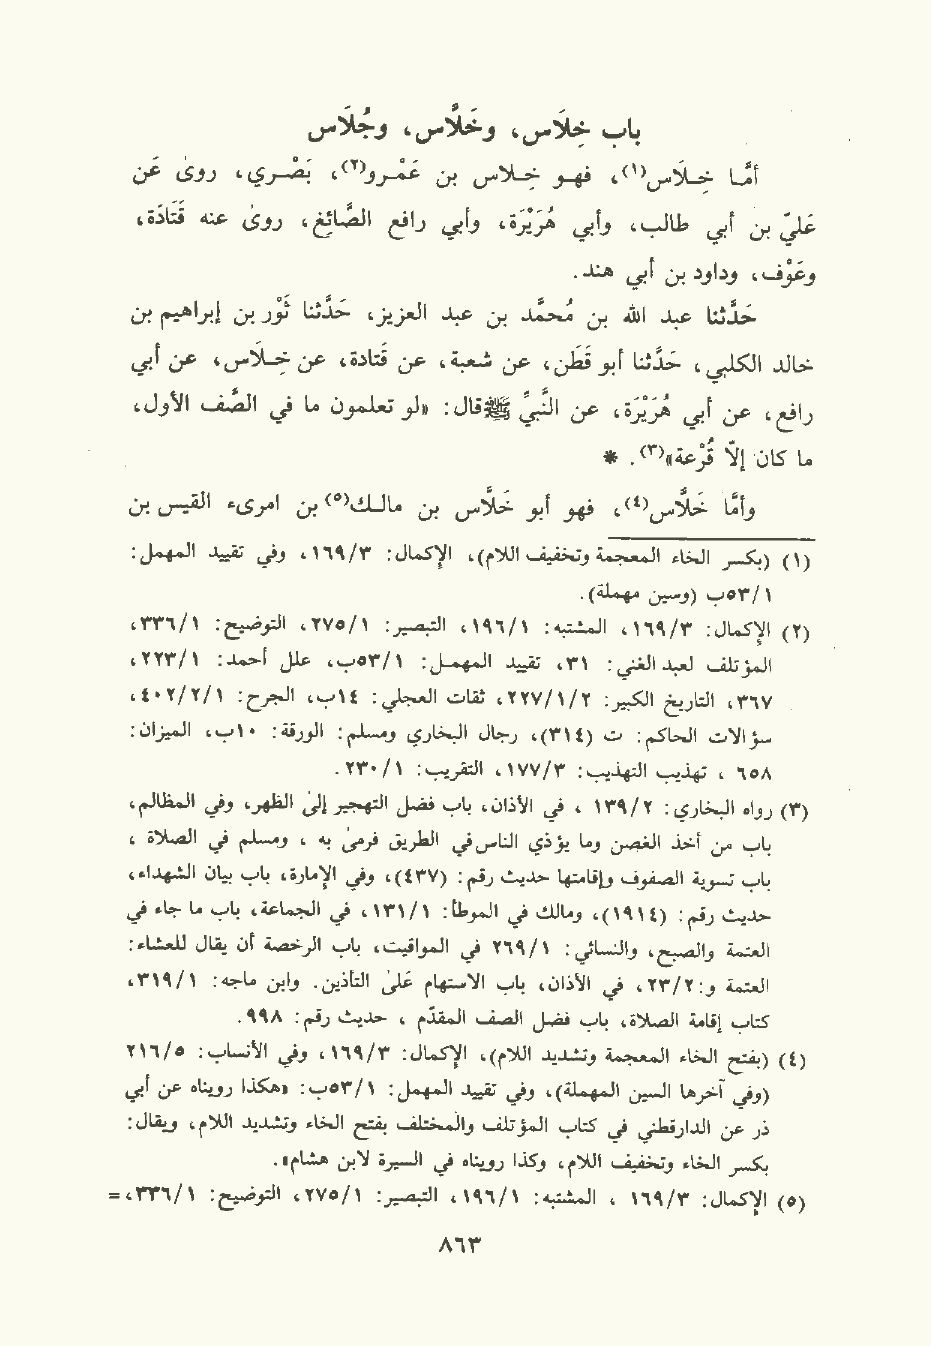 باب خِلَاس، وخَلَّاس، وجُلَاس
أمَّا خِلَاس(١)، فهو خِلاس بن عَمْرو(٢)، بَصْري، روىٰ عَن
عَليّ بن أبي طالب، وأبي هُرَيْرَة، وأبي رافع الصَّائِغ، روىٰ عنه قَتَادَة،
وعَوْف، وداود بن أبي هند.
حَدَّثنا عبد الله بن مُحمَّد بن عبد العزيز، حَدَّثنا ثَوْر بن إبراهيم بن
خالد الكلبي، حَدَّثنا أبو قَطَن، عن شعبة، عن قَتادة، عن خِلَاس، عن أبي
رافع، عن أبي هُرَيْرَة، عن النَّبيِّ ﷺ قال: «لو تعلمون ما في الصَّف الأول،
ما كان إلّا قُرْعة»(٣). *
وأمَّا خَلَّاس(٤)، فهو أبو خَلَّاس بن مالك(٥) بن امرىء القيس بن
(١) (بكسر الخاء المعجمة وتخفيف اللام)، الإكمال: ١٦٩/٣، وفي تقييد المهمل:
٥٣/١ب (وسين مهملة).
(٢) الإكمال: ١٦٩/٣، المشتبه: ١٩٦/١، التبصير: ٢٧٥/١، التوضيح: ٣٣٦/١،
المؤتلف لعبد الغني: ٣١، تقييد المهمل: ٥٣/١ب، علل أحمد: ٢٢٣/١،
٣٦٧، التاريخ الكبير: ٢٢٧/١/٢، ثقات العجلي: ١٤ب، الجرح: ٤٠٢/٢/١،
سؤالات الحاكم: ت (٣١٤)، رجال البخاري ومسلم: الورقة: ١٠ب، الميزان:
٦٥٨ ، تهذيب التهذيب: ١٧٧/٣، التقريب: ٢٣٠/١.
(٣) رواه البخاري: ١٣٩/٢ ، في الأذان، باب فضل التهجير إلىٰ الظهر، وفي المظالم،
باب من أخذ الغصن وما يؤذي الناس في الطريق فرمىٰ به ، ومسلم في الصلاة ،
باب تسوية الصفوف وإقامتها حديث رقم: (٤٣٧)، وفي الإمارة، باب بيان الشهداء،
حديث رقم: (١٩١٤)، ومالك في الموطأ: ١٣١/١، في الجماعة، باب ما جاء في
العتمة والصبح، والنسائي: ٢٦٩/١ في المواقيت، باب الرخصة أن يقال للعشاء:
العتمة و:٢٣/٢، في الأذان، باب الاستهام علىٰ التأذين. وابن ماجه: ٣١٩/١،
كتاب إقامة الصلاة، باب فضل الصف المقدّم ، حديث رقم: ٩٩٨.
(٤) (بفتح الخاء المعجمة وتشديد اللام)، الإكمال: ١٦٩/٣، وفي الأنساب: ٢١٦/٥
(وفي آخرها السين المهملة)، وفي تقييد المهمل: ٥٣/١ب: «هكذا رويناه عن أبي
ذر عن الدارقطني في كتاب المؤتلف والمختلف بفتح الخاء وتشديد اللام، ويقال:
بكسر الخاء وتخفيف اللام، وكذا رويناه في السيرة لابن هشام».
(٥) الإكمال: ١٦٩/٣ ، المشتبه: ١٩٦/١، التبصير: ٢٧٥/١، التوضيح: ٣٣٦/١،=
٨٦٣